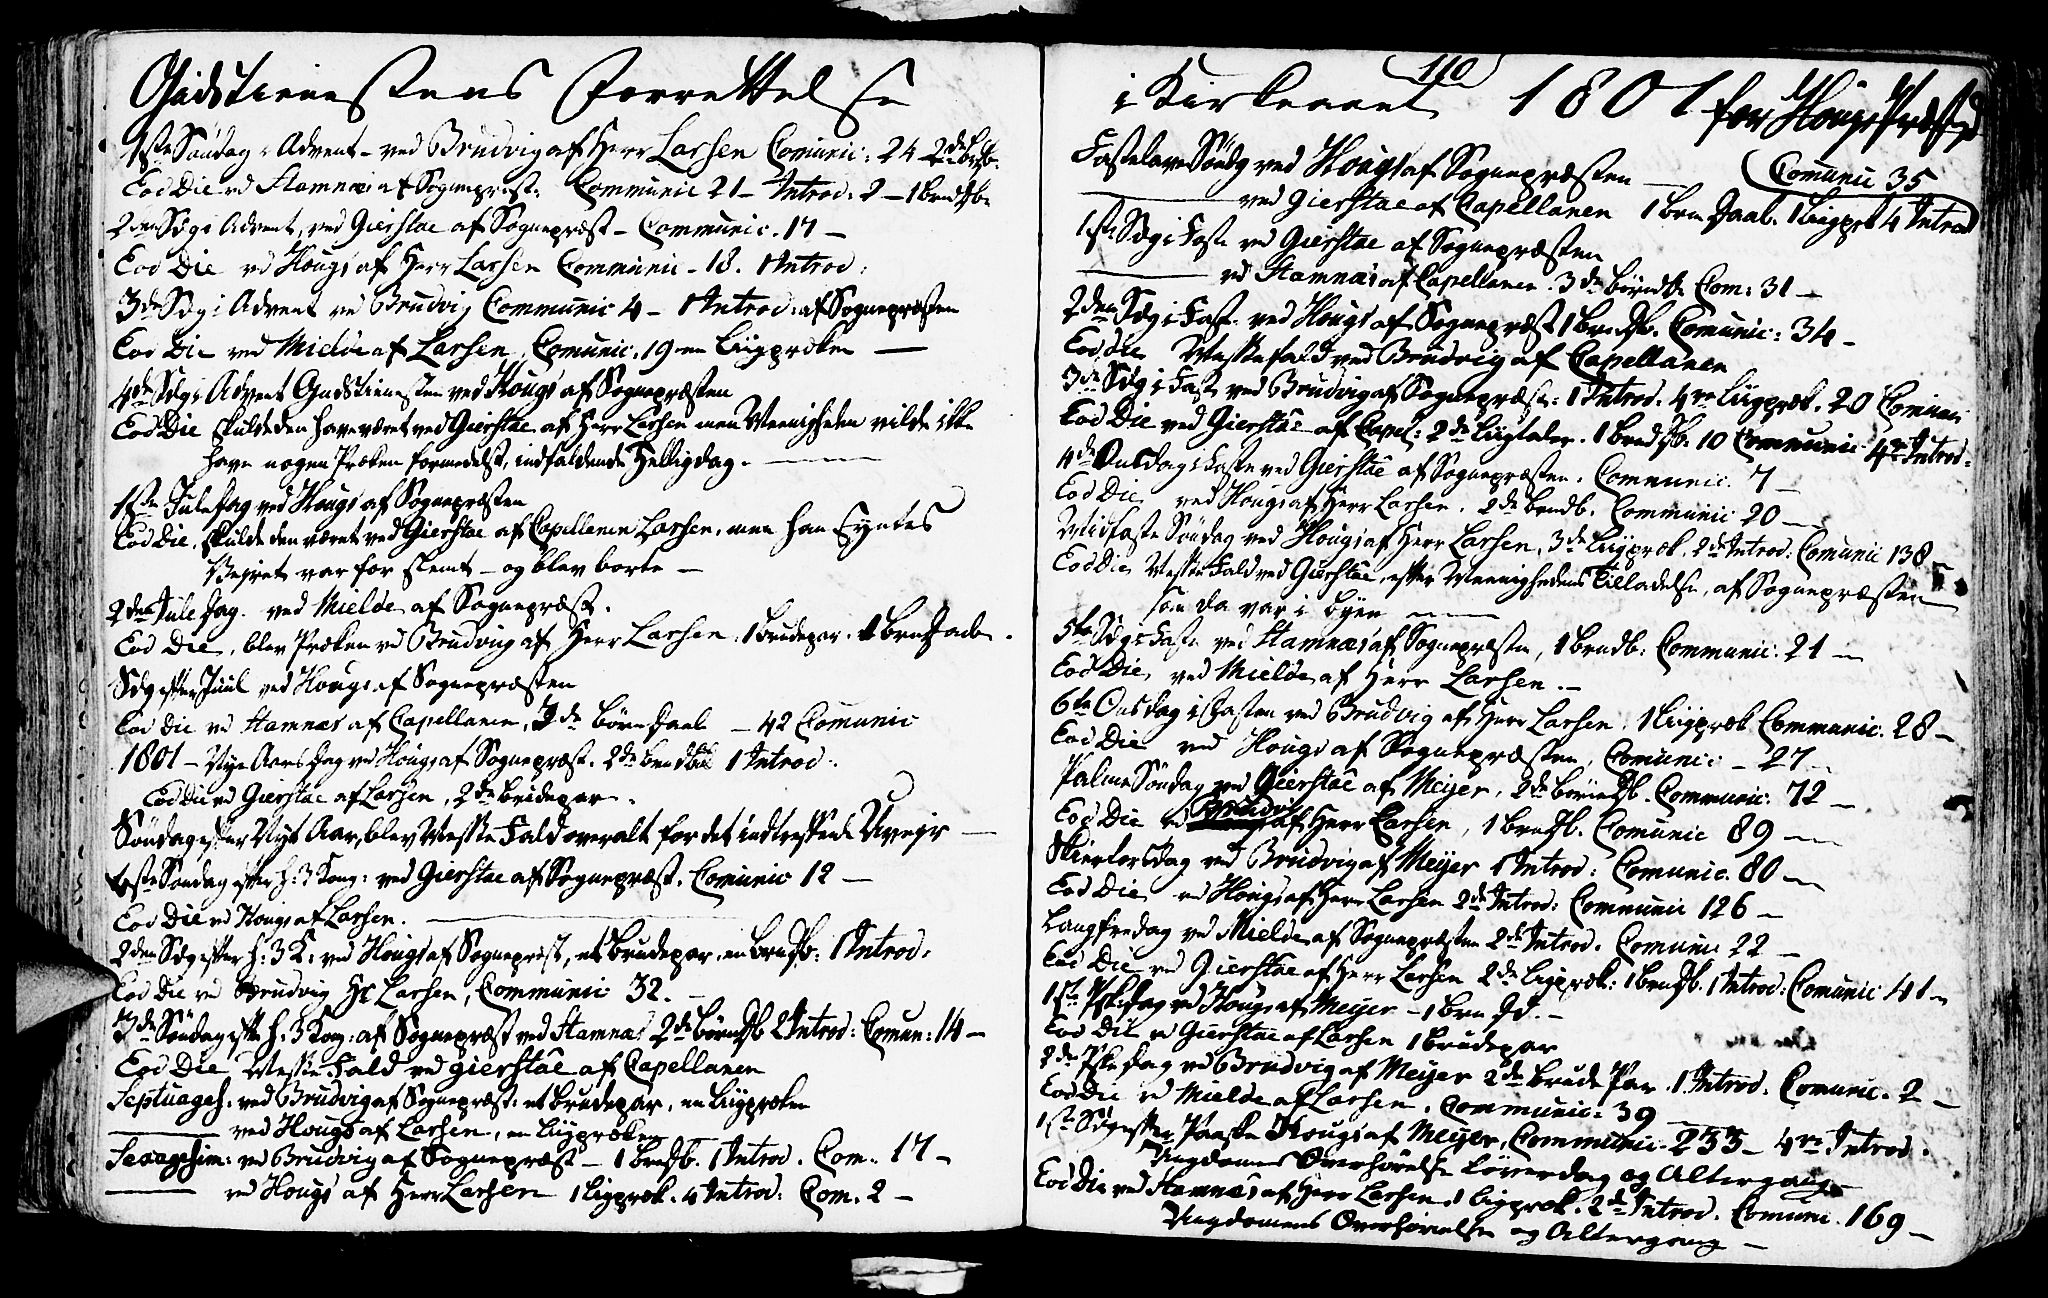 Gudstienestens Forrettelse
1ste Søndag i Advent - ved Brudvig af Herr Larsen Comunic: 24 2de brsb:
Eod Die vd Stamnæs af Sognepræst: Communic 21 - Introd: 2 - 1 brndb.
2den Sdg i Advent, ved Gierstae af Sognepræst - Communic. 17 -
Eod Die vd Hougs af Herr Larsen Communic - 18. 1 Introd:
3de Sdg i Advent vd Brudvig Communic 4 - 1 Introd: af Sognepræsten
Eod Die ved Mielde af Larsen, Comunic. 19 en Liigprækn -
4de Sdg i Advent Gudstienesten ved Hougs af Sognepræsten
Eod Die skulde den have været ved Gierstae af Herr Larsen men Meenigheden vilde ikke
have nogen Præken formedelst, indfaldende Helligdag. -
1ste Juledag ved Hougs af Sognepræsten
Eod Die. skulde den været ved Gierstae af Capellanen Larsen, men han Syntes
Veiret var for slemt - og blev borte -
2den Jule Dag. ved Mielde af Sognepræst.
Eod Die, blev Præken vd Brudvig af Herr Larsen, 1 brudepar. 1 brn Daab.
Sdg efter Juul ved Hougs af Sognepræsten
Eod Die vd Stamnæs af Capellanen, 3de børn Daab - 42 Comunic
1801 - Nye Aars Dag ved Hougs af Sognepræst. 2de brndb 1 Introd.
Eod Die vd Gierstae af Larsen, 2de brudepar.
Søndag efter Nyt Aar, blev Messe Fald overalt for det indtreffende Uveyr -
1ste Søndag efter H: 3 Kong: ved Gierstae af Sognepræst. Comunic 12 -
Eod Die vd Hougs af Larsen. -
2den Sdg efter H: 3 K: ved Hougs af Sognepræst, et brudepar, en brndb: 1 Introd.
Eod Die vd Brudvig Hr Larsen, Communic 32. -
3de Søndag efter H: 3 Kong: af Sognepræst ved Stamnæs 2de børndb 2 Introd: Comun: 14 -
Eod Die Messe Fald ved Gierstae af Capellanen
Septuages. ved Brudvig af Sognepræst: et brudepar, en Liigprækn
ved Hougs af Larsen, en Liigprækn
Sexagesim: vd Brudvig af Sognepræst - 1 brndb. 1 Introd. Com: 17 -
vd Hougs af Herr Larsen 1 Ligpræk. 4 Introd: Com. 2 -
110
i Kirkeaaret 1801 for Hougs Præstegd
Fastelavns Søndg ved Hougs af Sognepræsten - Comunic 35
ved Gierstae af Capellanen 1 brn Daab. 1 Liigprk 4 Introd
1ste Sdg i Faste vd Gierstae af Sognepræsten
vd Stamnæs af Capellanen. 3de børndb Com: 31 -
2den Sdg i Fast. ved Hougs af Sognepræst 1 brndb. Comunic: 34 -
Eod Die Messefald ved Brudvig af Capellanen
3de Sdg i Fast. ved Brudvig af Sognepræst: 1 Introd. 4re Liigpræk. 20 Comunic
Eod Die ved Gierstae af Capel: 2de Liigtaler. 1 brndb. 10 Communic 4re Introd:
4de Onsdag i Faste ved Gierstae af Sognepræsten. Communic. 7 -
Eod Die ved Hougs af Herr Larsen. 2de brndb. Communic 20 -
Midfaste Søndag ved Hougs af Herr Larsen, 3de Liigpræk. 2de Introd: Comunic 138
Eod Die Messe Fald ved Gierstae, efter Meenighedens Tilladelse, af Sognepræsten
som da var i byen -
5te Sdg i Fast. ved Stamnæs af Sognepræsten, 1 brndb: Communic. 21 -
Eod Die ved Mielde af Herr Larsen. -
6te Onsdag i Fasten ved Brudvig af Herr Larsen, 1 Liigpræk Communic. 28 -
Eod Die ved Hougs af Sognepræsten, Comunic - 27 -
Palme Søndag ved Gierstae af Meyer, 2de børndb. Communic. 72 -
Eod Die vd Brudvig af Herr Larsen, 1 brndb. Comunic 89 -
Skiertorsdag ved Brudvig af Meyer 1 Introd: Comunic. 80 -
Eod Die vd Hougs af Herr Larsen 2de Introd: Communic 126 -
Langfredag ved Mielde af Sognepræsten 2de Introd. Comunic 22 -
Eod Die vd Gierstae af Herr Larsen 2de Ligpræk: 1 brndb. 1 Introd: Comunic 41 -
1ste Pskedag vd Hougs af Meyer - 1 brn D. -
Eod Die vd Gierstae af Larsen 1 brudepar
2de Pske Dag vd Brudvig af Meyer 2de brude Par. 1 Introd. Comunic. 2 -
Eod Die vd Mielde af Larsen, Communic: 39 -
1ste Sdg efter Paaske Hougs af Meyer, Communic. 233 - 4re Introd.
Ungdomens Overhørelse Løverdag og Altergang
Eod Die ved Stamnæs af Herr Larsen 1 Ligpræk. 2de Introd. Comunic. 169 -
Ungdomens Overhørelse og Altergang -